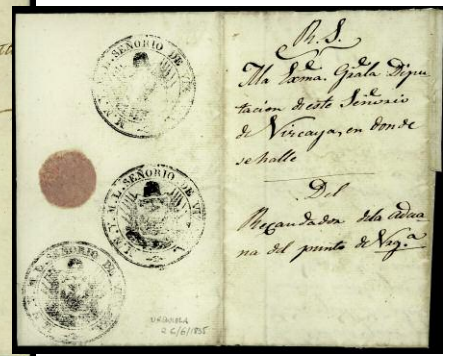 M.N.Y.M.L. SEÑORIO DE VIZ
M.N.Y.M.L. SEÑORIO DE VIZ
M.N.Y.M.L. SEÑORIO DE
VERGARA
2 6/6/1835
R. S.
A la Exma. Grāl Dipu
tacion de este Señorio
de Vizcaya, en donde
se halle
Del
Recaudador dela Adua
na del punto de